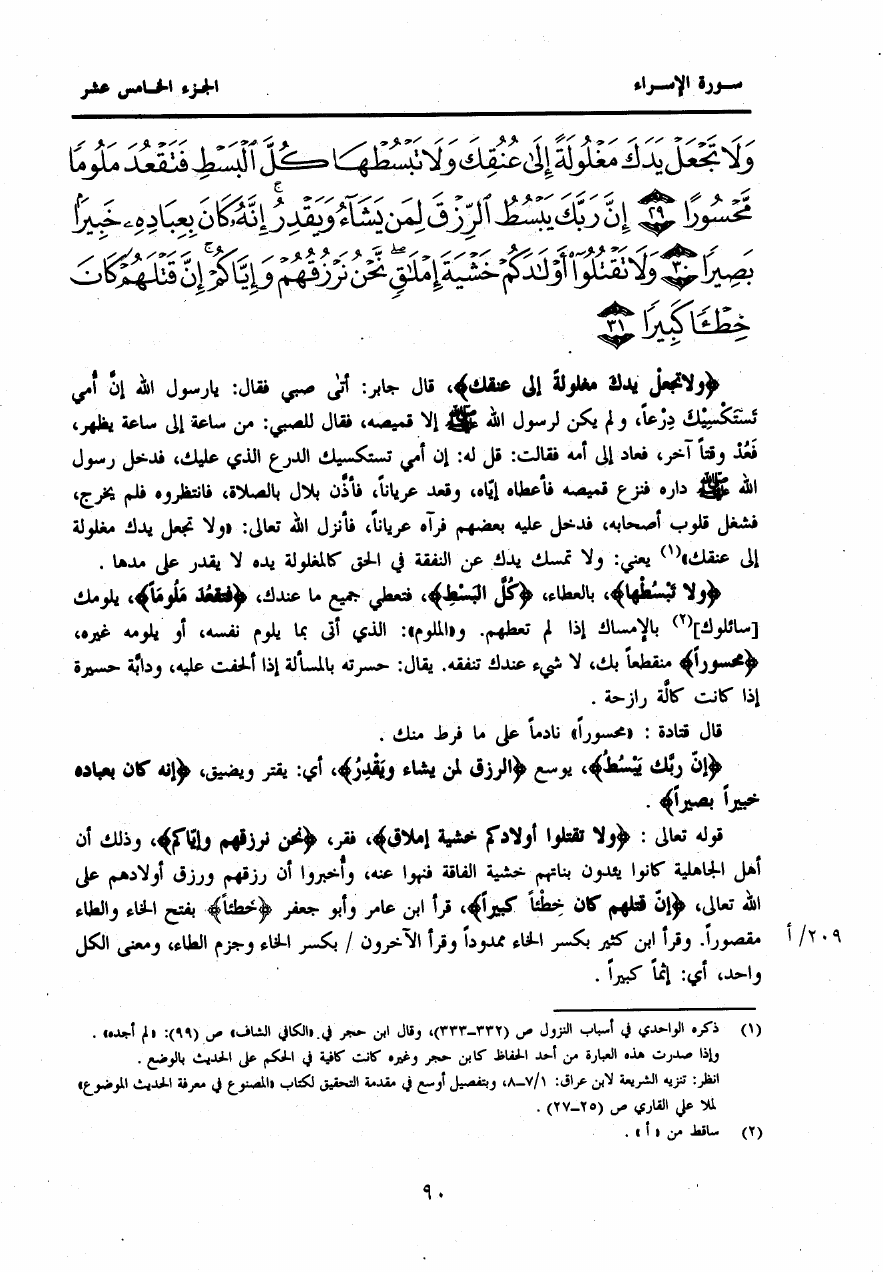 سـورة الإسـراء
الجـزء الخـامس عشر
وَلَا تَجْعَلْ يَدَكَ مَغْلُولَةً إِلَىٰ عُنُقِكَ وَلَا تَبْسُطْهَا كُلَّ ٱلْبَسْطِ فَتَقْعُدَ مَلُومًا
مَّحْسُورًا ﴿٢٩﴾ إِنَّ رَبَّكَ يَبْسُطُ ٱلرِّزْقَ لِمَن يَشَآءُ وَيَقْدِرُ ۚ إِنَّهُۥ كَانَ بِعِبَادِهِۦ خَبِيرًۢا
بَصِيرًا ﴿٣٠﴾ وَلَا تَقْتُلُوٓا۟ أَوْلَٰدَكُمْ خَشْيَةَ إِمْلَٰقٍ ۖ نَّحْنُ نَرْزُقُهُمْ وَإِيَّاكُمْ ۚ إِنَّ قَتْلَهُمْ كَانَ
خِطْـًٔا كَبِيرًا ﴿٣١﴾
﴿ولاتجعلْ يدك مغلولةً إلى عنقك﴾، قال جابر: أتىٰ صبي فقال: يارسول الله إنَّ أُمي
تَسْتَكْسِيْكَ دِرْعاً، ولم يكن لرسول الله ﷺ إلا قميصه، فقال للصبي: من ساعة إلى ساعة يظهر،
فَعُدْ وقتاً آخر، فعاد إلى أمه فقالت: قل له: إن أمي تستكسيك الدرع الذي عليك، فدخل رسول
الله ﷺ داره فنزع قميصه فأعطاه إيّاه، وقعد عرياناً، فأذَّن بلال بالصلاة، فانتظروه فلم يخرج،
فشغل قلوب أصحابه، فدخل عليه بعضهم فرآه عرياناً، فأنزل الله تعالى: «ولا تجعل يدك مغلولة
إلى عنقك»(١) يعني: ولا تمسك يدك عن النفقة في الحق كالمغلولة يده لا يقدر على مدها .
﴿ولا تَبْسُطْها﴾، بالعطاء، ﴿كُلَّ البَسْطِ﴾، فتعطي جميع ما عندك، ﴿فتقعُدَ مَلُوماً﴾، يلومك
[سائلوك](٢) بالإمساك إذا لم تعطهم. و«الملوم»: الذي أتى بما يلوم نفسه، أو يلومه غيره،
﴿محسوراً﴾ منقطعاً بك، لا شيء عندك تنفقه. يقال: حسرته بالمسألة إذا ألحفت عليه، ودابَّة حسيرة
إذا كانت كالَّة رازحة .
قال قتادة : «محسوراً» نادماً على ما فرط منك .
﴿إنّ ربَّك يَبْسُطُ﴾، يوسع ﴿الرزق لمن يشاء ويَقْدِرُ﴾، أي: يقتر ويضيق، ﴿إنه كان بعباده
خبيراً بصيراً﴾ .
قوله تعالى : ﴿ولا تقتلوا أولادكم خشية إملاق﴾، فقر، ﴿نحن نرزقهم وإيّاكم﴾، وذلك أن
أهل الجاهلية كانوا يئدون بناتهم خشية الفاقة فنهوا عنه، وأُخبروا أن رزقهم ورزق أولادهم على
الله تعالى، ﴿إنّ قتلهم كان خِطْئاً كبيراً﴾، قرأ ابن عامر وأبو جعفر ﴿خَطَئاً﴾ بفتح الخاء والطاء
مقصوراً. وقرأ ابن كثير بكسر الخاء ممدوداً وقرأ الآخرون / بكسر الخاء وجزم الطاء، ومعنى الكل
٢٠٩/ أ
واحد، أي: إثماً كبيراً .
(١) ذكره الواحدي في أسباب النزول ص (٣٣٢-٣٣٣)، وقال ابن حجر في «الكافي الشاف» ص (٩٩): «لم أجده» .
وإذا صدرت هذه العبارة من أحد الحفاظ كابن حجر وغيره كانت كافية في الحكم على الحديث بالوضع .
انظر: تنزيه الشريعة لابن عراق: ٧/١-٨، وبتفصيل أوسع في مقدمة التحقيق لكتاب «المصنوع في معرفة الحديث الموضوع»
لملا علي القاري ص (٢٥-٢٧) .
(٢) ساقط من « أ » .
٩٠